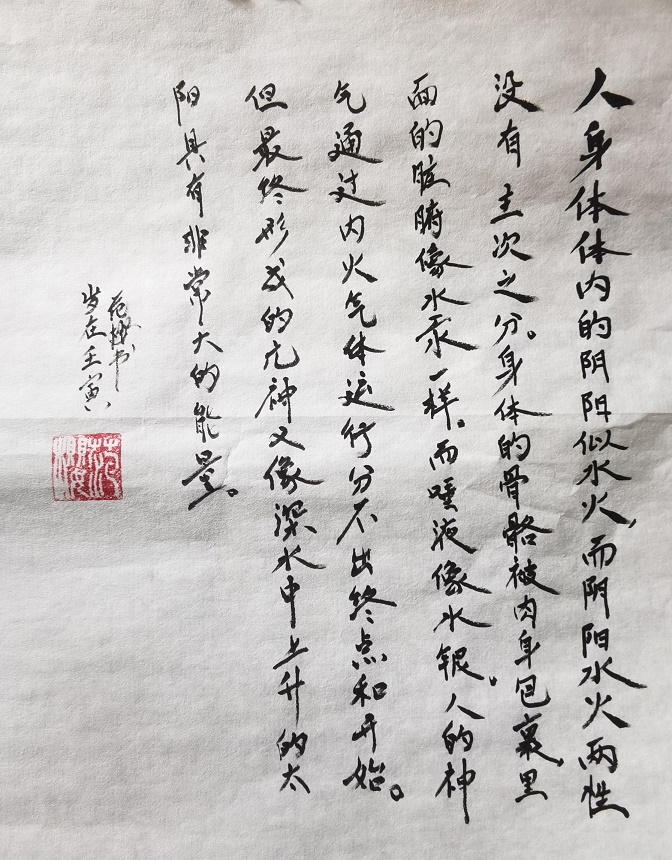 人身体体内的阴阳似水火，而阴阳水火两性
没有主次之分。身体的骨骼被肉身包裹，里
面的脏腑像水汞一样。而唾液像水银。人的神
气通过内火气体运行分不出终点和开始。
但最终形成的元神又像深水中上升的太
阳具有非常大的能量。
范书
岁在壬寅